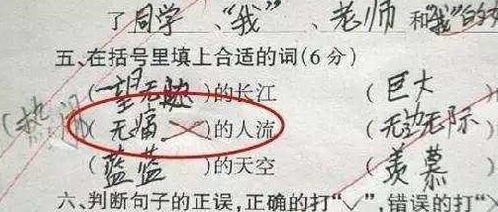 了同学、“我”、老师和“我”的
五、在括号里填上合适的词(6分)
(一望无)的长江 (巨大
(热闹)(无痛)的人流 (无边无际
(蓝蓝)的天空 (羡慕
六、判断句子的正误，正确的打“√”，错误的打“×